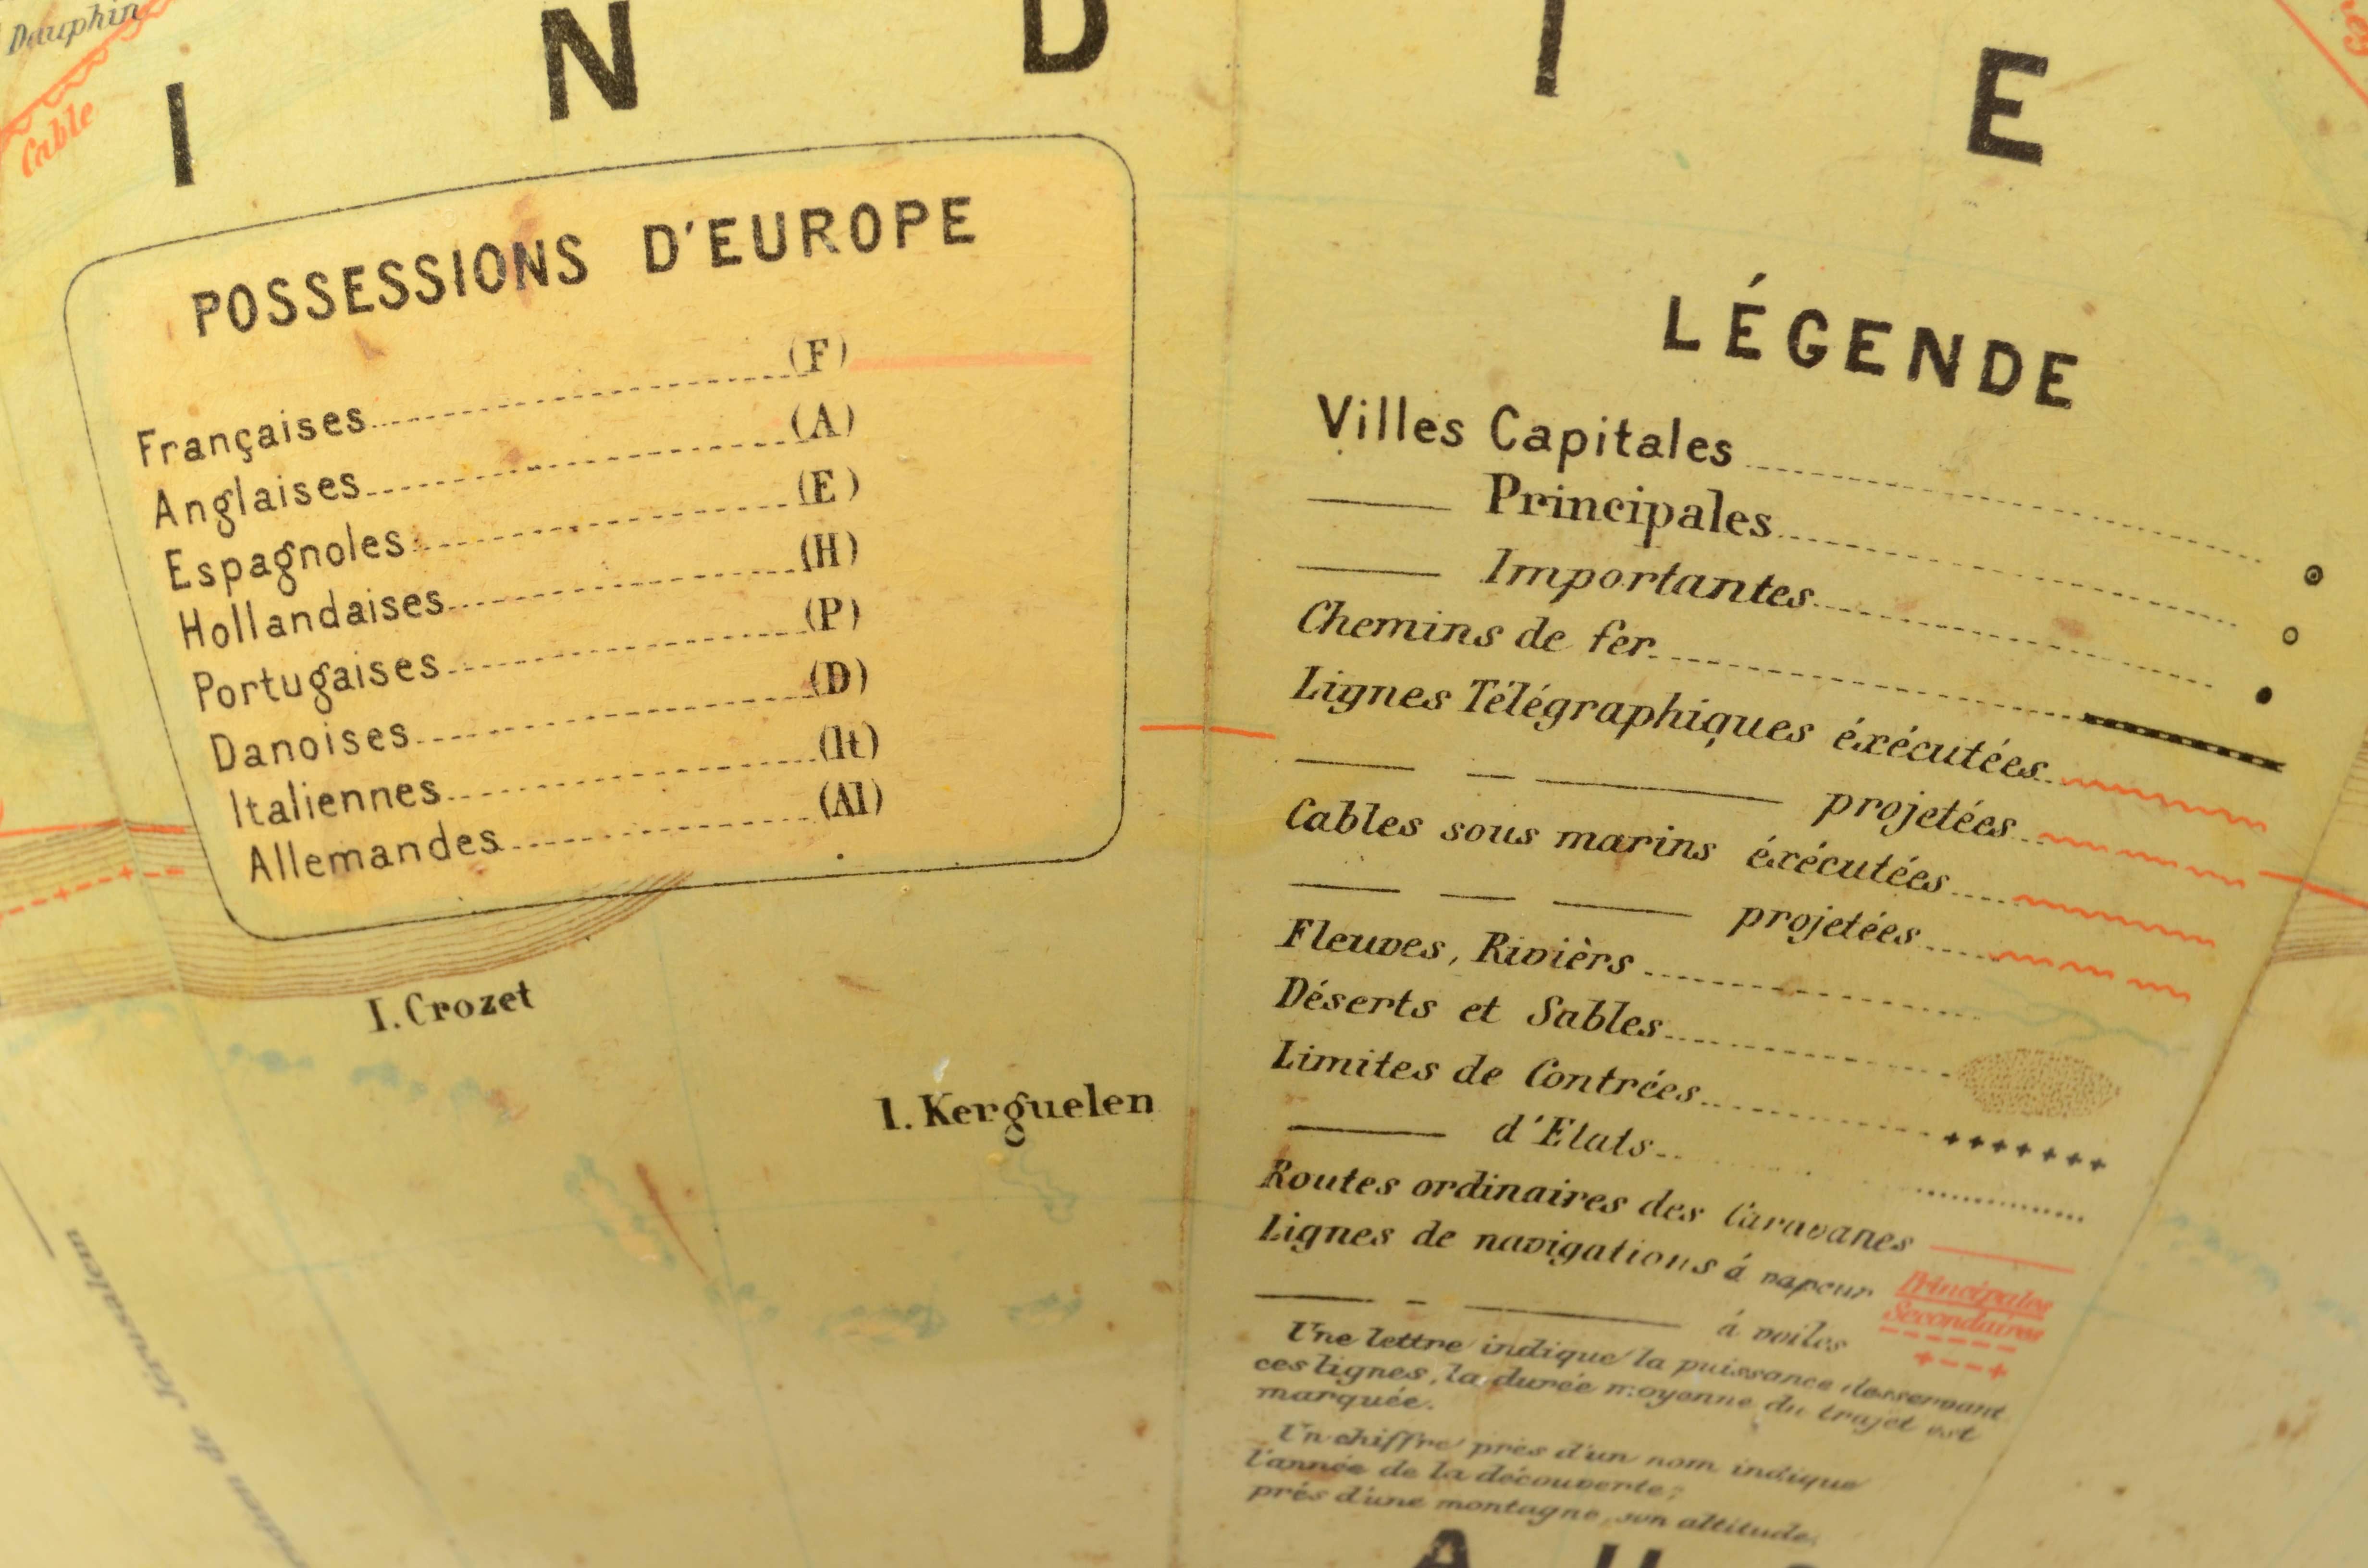 Dauphin
Cable
INDIE
POSSESSIONS D'EUROPE
Françaises (F)
Anglaises (A)
Espagnoles (E)
Hollandaises (H)
Portugaises (P)
Danoises (D)
Italiennes (It)
Allemandes (Al)
I. Crozet
I. Kerguelen
de Jérusalem
LÉGENDE
Villes Capitales
Principales
Importantes
Chemins de fer
Lignes Télégraphiques éxécutées
projetées
Cables sous marins éxécutées
projetées
Fleuves, Rivièrs
Déserts et Sables
Limites de Contrées
d'Etats
Routes ordinaires des Caravanes
Lignes de navigations á vapeur Principales
Secondaires
á voiles
Une lettre indique la puissance desservant
ces lignes, la durée moyenne du trajet est
marquée.
Un chiffre près d'un nom indique
l'année de la découverte;
prés d'une montagne, son altitude.